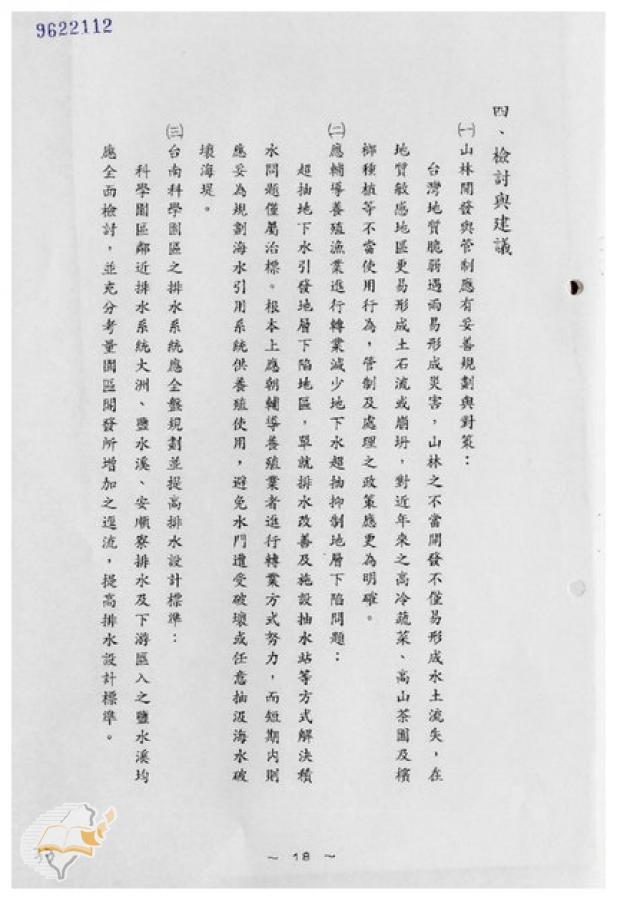 9622112
四、檢討與建議
㈠山林開發與管制應有妥善規劃與對策：
台灣地質脆弱遇雨易形成災害，山林之不當開發不僅易形成水土流失，在
地質敏感地區更易形成土石流或崩坍，對近年來之高冷蔬菜、高山茶園及檳
榔種植等不當使用行為，管制及處理之政策應更為明確。
㈡應輔導養殖漁業進行轉業減少地下水超抽抑制地層下陷問題：
超抽地下水引發地層下陷地區，單就排水改善及施設抽水站等方式解決積
水問題僅屬治標。根本上應朝輔導養殖業者進行轉業方式努力，而短期內則
應妥為規劃海水引用系統供養殖使用，避免水門遭受破壞或任意抽汲海水破
壞海堤。
㈢台南科學園區之排水系統應全盤規劃並提高排水設計標準：
科學園區鄰近排水系統大洲、鹽水溪、安順寮排水及下游區入之鹽水溪均
應全面檢討，並充分考量園區開發所增加之逕流，提高排水設計標準。
～ 18 ～